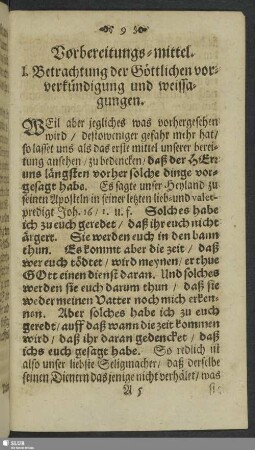 9
Vorbereitungs-mittel.
I. Betrachtung der Göttlichen vor-
verkündigung und weissa-
gungen.
WEil aber jegliches was vorhergesehen
wird / destoweniger gefahr mehr hat /
so lasset uns als das erste mittel unserer berei-
tung ansehen / zu bedencken / daß der HErr
uns längsten vorher solche dinge vor-
gesagt habe. Es sagte unser Heyland zu
seinen Aposteln in seiner letzten lieb- und valet-
predigt Joh. 16 / 1. u. f. Solches habe
ich zu euch geredet / daß ihr euch nicht
ärgert. Sie werden euch in den bann
thun. Es kommt aber die zeit / daß
wer euch tödtet / wird meynen / er thue
GOtt einen dienst daran. Und solches
werden sie euch darum thun / daß sie
weder meinen Vatter noch mich erken-
nen. Aber solches habe ich zu euch
geredt / auff daß wann die zeit kommen
wird / daß ihr daran gedencket / daß
ichs euch gesagt habe. So redlich ist
also unser liebste Seligmacher / daß derselbe
seinen Dienern dasjenige nicht verhälet / was
A 5
SLUB